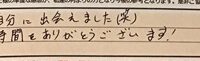 自分に出会えました(笑)
時間をありがとうございます!